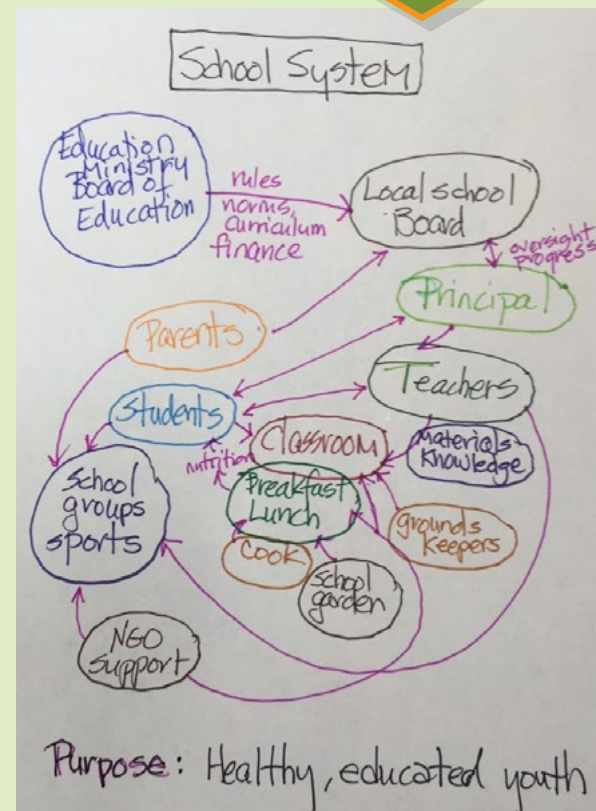 School System
Education
Ministry
Board of
Education
rules
norms,
curriculum
finance
Local school
Board
oversight
progress
Principal
Parents
Teachers
Students
Classroom
Materials-
Knowledge
nutrition
Breakfast
Lunch
School
groups
sports
grounds
Keepers
Cook
School
garden
NGO
Support
Purpose: Healthy, educated youth